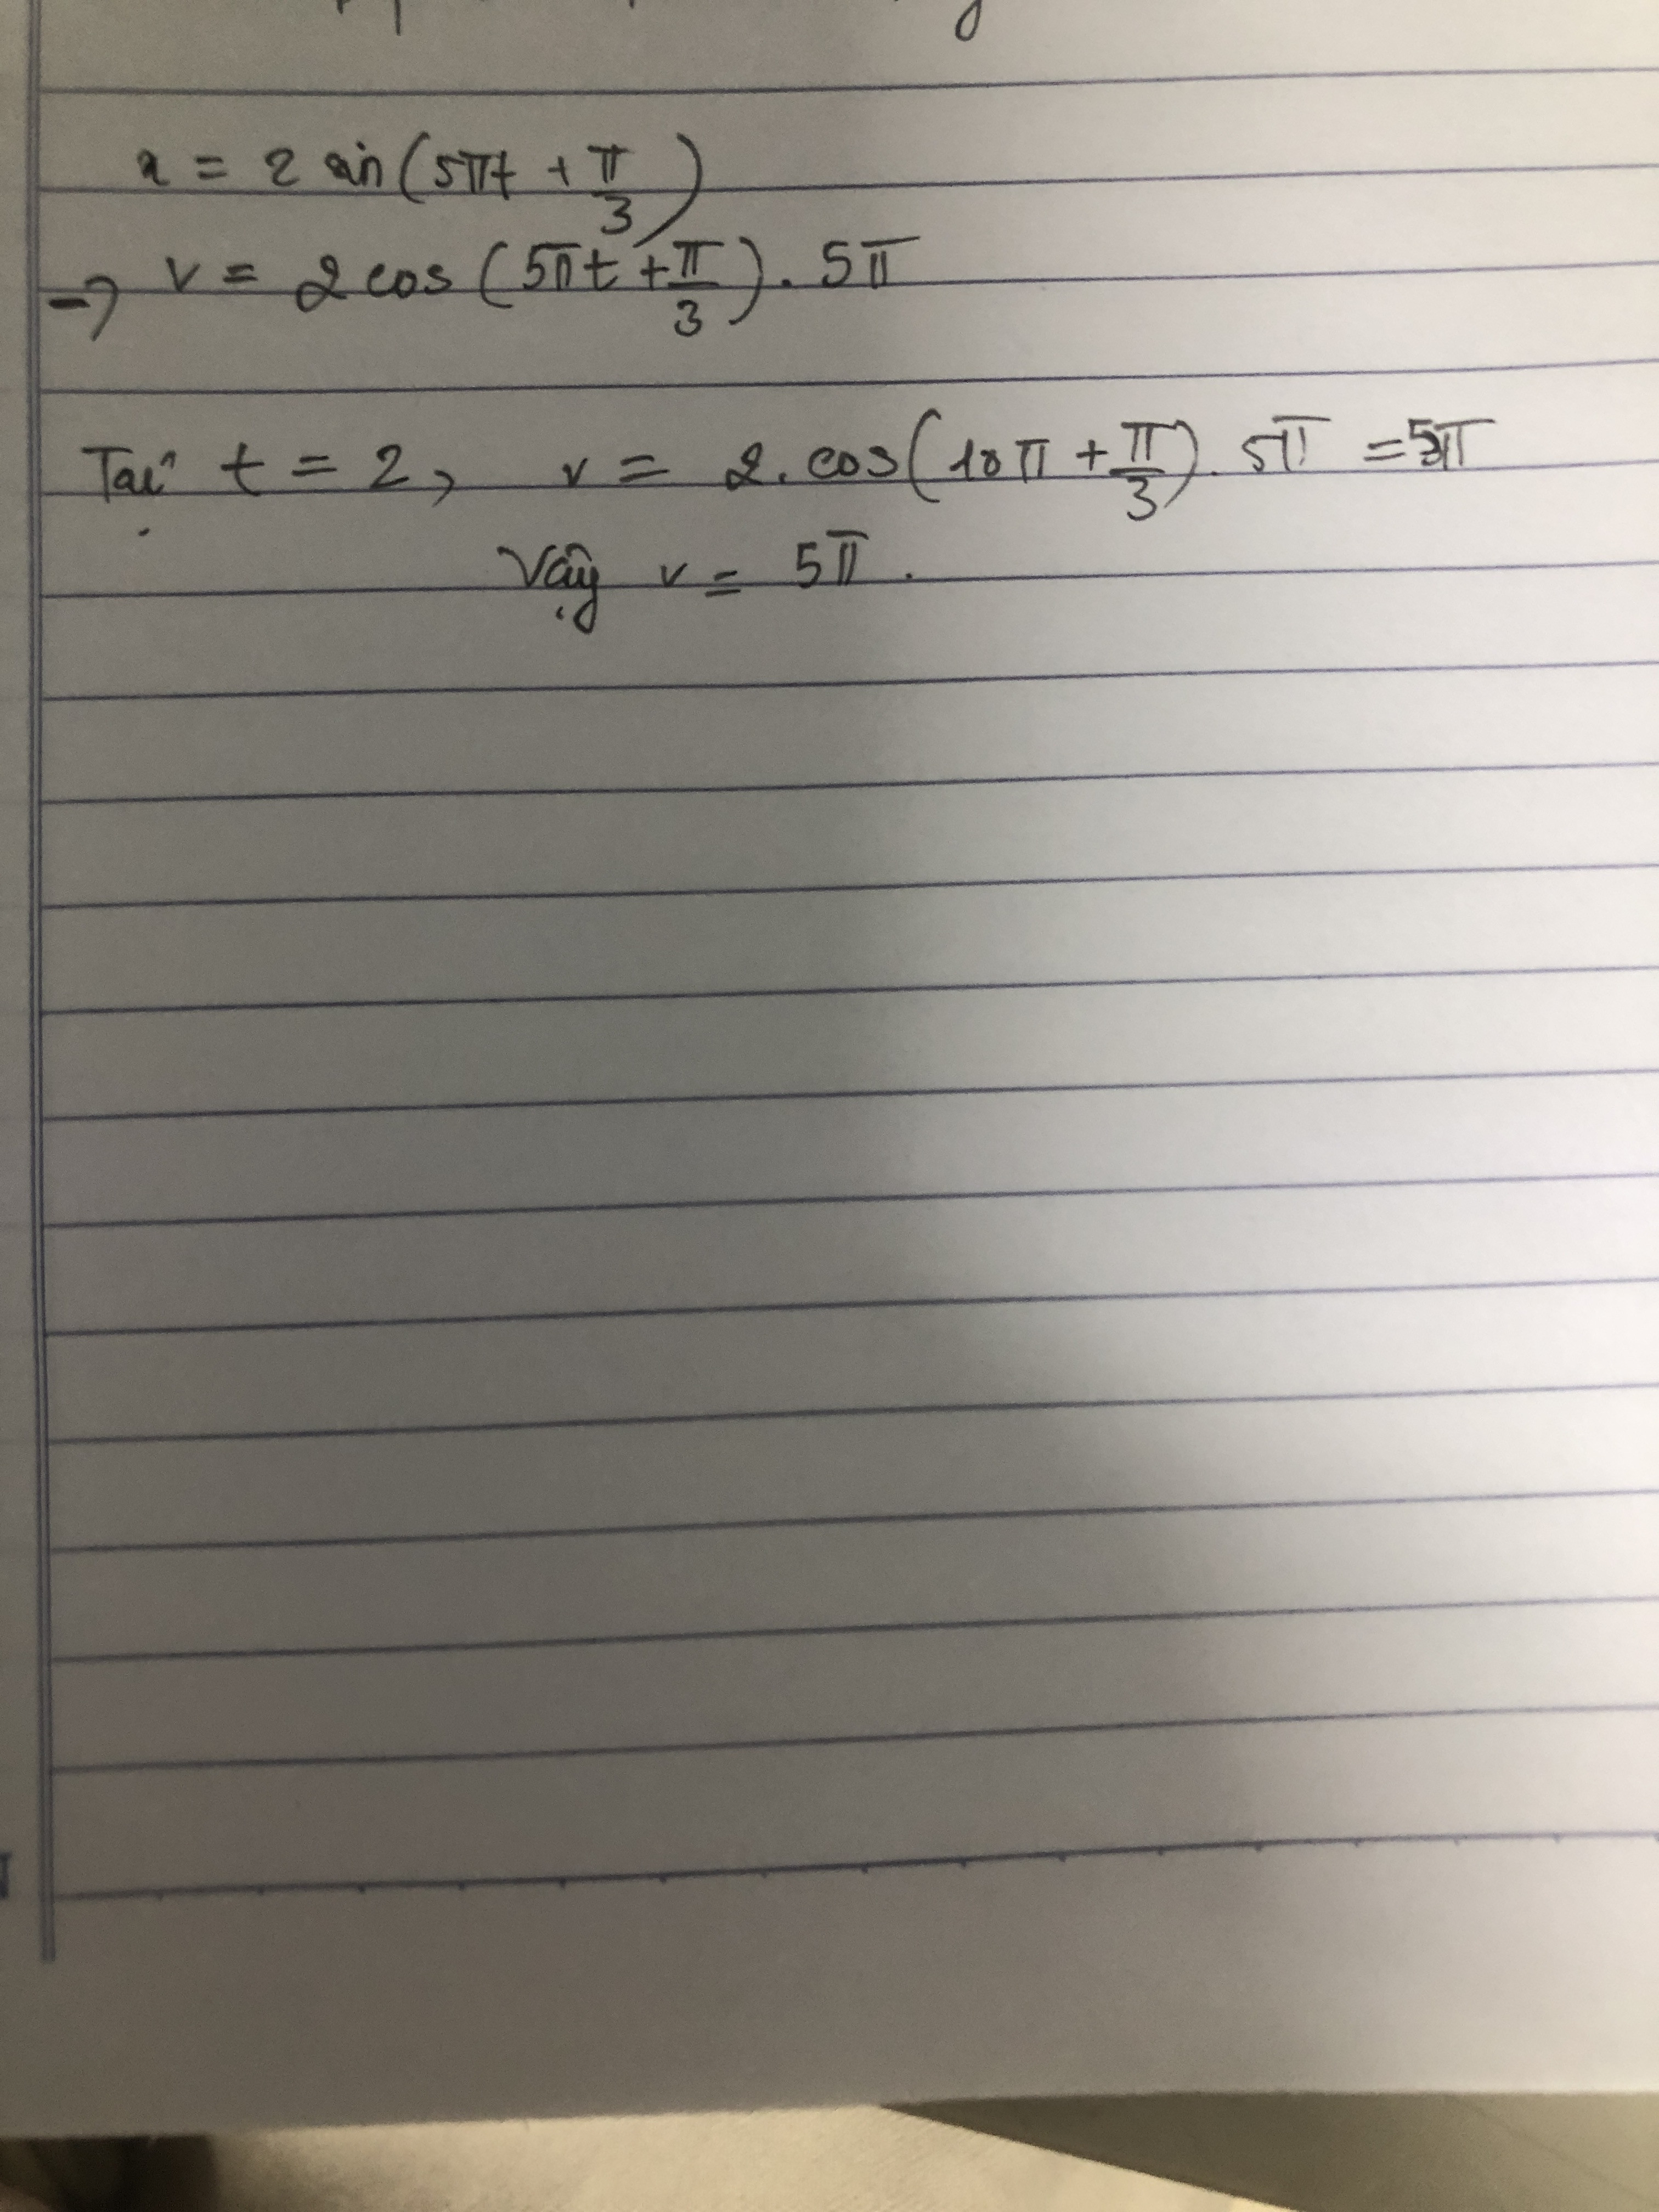 x = 2 sin(5πt + π/3)
→ v = 2 cos(5πt + π/3). 5π
Tại t = 2, v = 2. cos(10π + π/3). 5π = 5π
Vậy v = 5π.